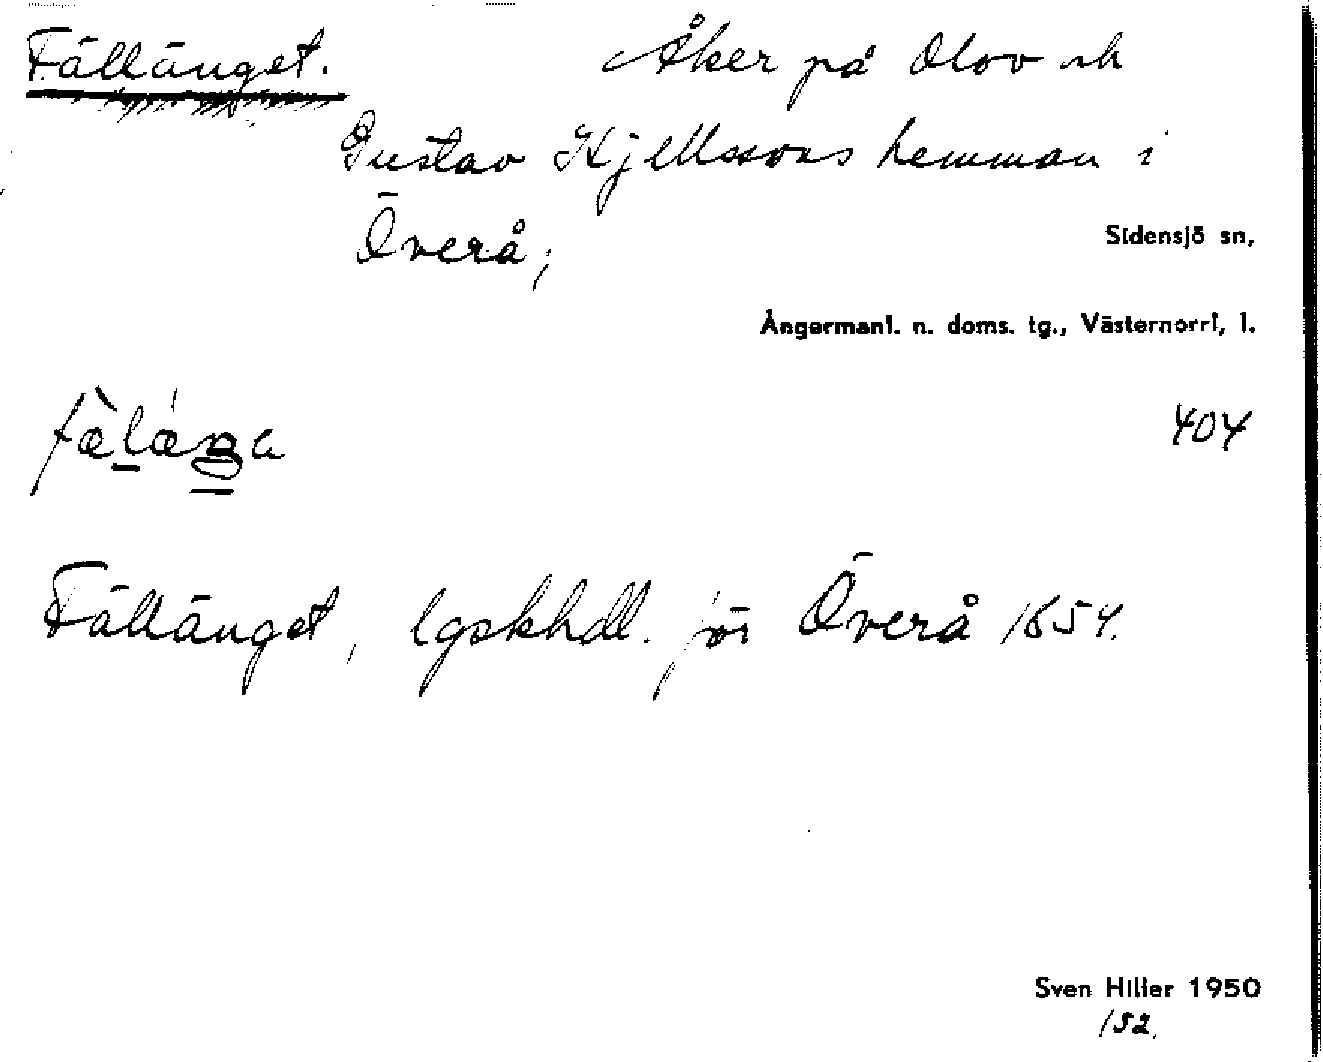 Fällänget. Åker på Olov och
Gustav Kjellssons hemman i
Överå,
Sidensjö sn,
Ångermanl. n. doms. tg., Västernorrl, l.
404
Fällänget, lgskhdl. för Överå 1654.
Sven Hiller 1950
152.